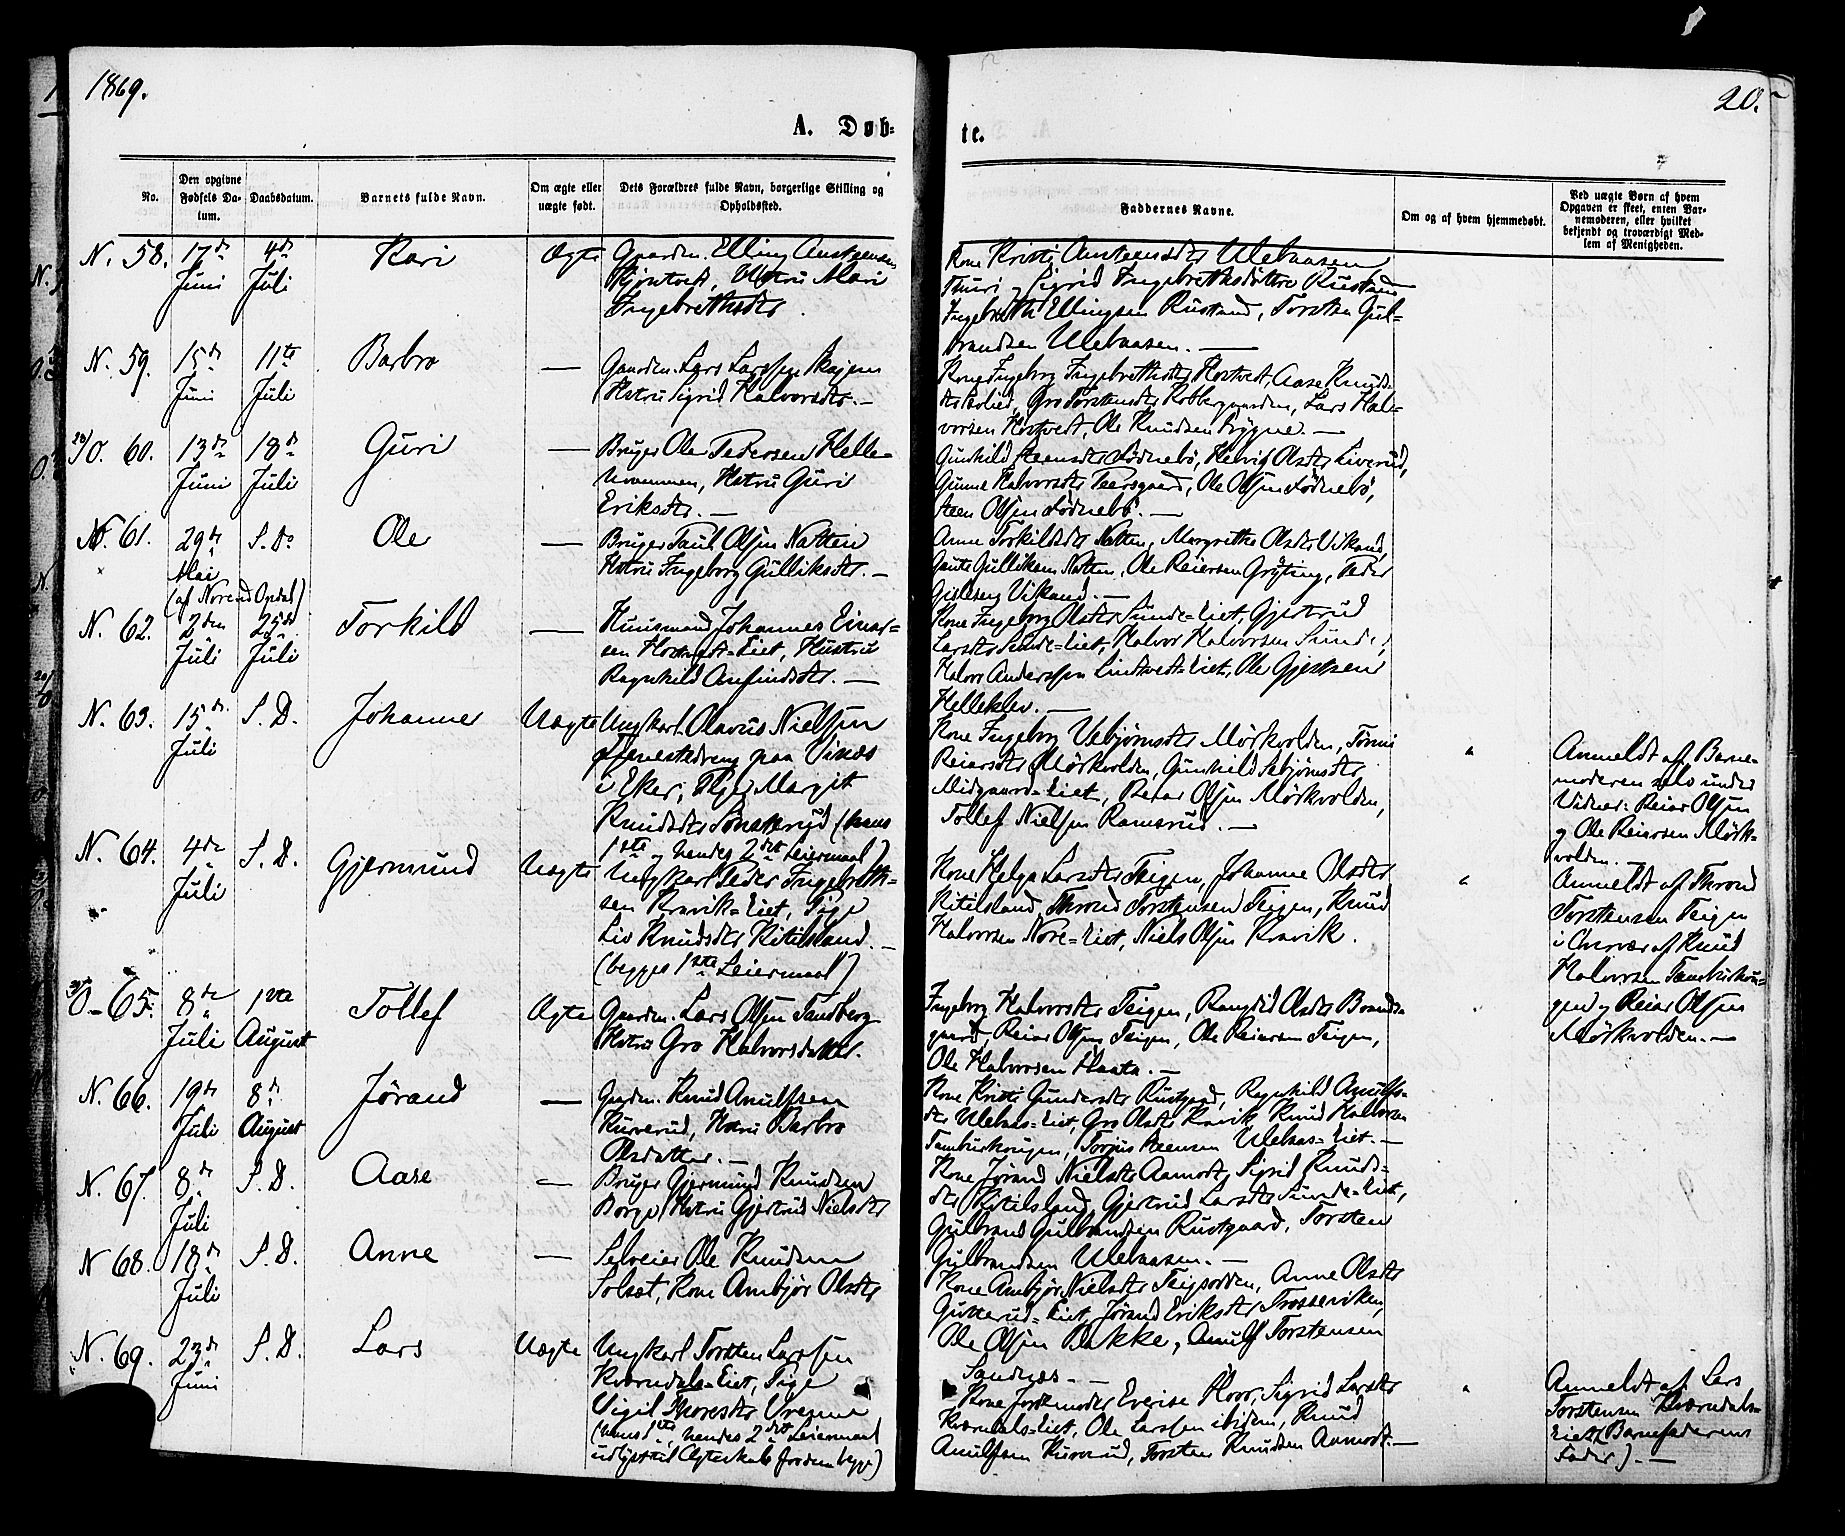 1869.
20.
A. Døb-
te.
No.
Den opgivne Fødsels Datum.
Daabsdatum.
Barnets fulde Navn.
Om ægte eller uægte født.
Dets Forældres fulde Navn, borgerlige Stilling og Opholdssted.
Faddernes Navne.
Om og af hvem hjemmedøbt.
Ved uægte Børn af hvem Opgaven er skeet, enten Barnemoderen, eller hvilket bekjendt og troværdigt Medlem af Menigheden.
N. 58. 17de Juni 4de Juli Kari Ægte
Gaardm. Elling
Hustru Mari
Ingebrethsdtr.
Kone Kristi Amsteensdtr Ulebaasen
Thuri og Sigrid Ingebrethsdøttre Rustand
Ingebreth Ellingsen Rustand, Torsten Gul-
brandsen Ulebaasen. —
N. 59. 15de Juni 11te Juli Barbro —
Gaardm. Lars Larssen
Hstru Sigrid Halvorsdtr. —
Kone Ingeborg Ingebrethsdtr Aase Knuds-
dtr Gro Torstensdtr Lars Hal-
vorsen Ole Knudsen —
O. 60. 13de Juni 18de Juli Guri —
Bruger Ole Pedersen Helle-
Hstru Guri
Eriksdtr. —
Gunhild Steensdtr Fødnebø, Olsdtr Liverud,
Gunne Halvorsdtr Ole Olsen Fødnebø,
Steen Olsen Fødnebø. —
N. 61. 29de Mai S. D. Ole —
(af Nore Opdal)
Bruger Paul Olsen Natten
Hstru Ingeborg Gulliksdtr. —
Anne Torkildsdtr Natten, Margrethe Olsdtr Vikand,
Gaute Gulliksen Natten, Ole Reiersen Grøting, Peder
Vikand. —
N. 62. 2den Juli 25de Juli Torkild —
Huusmand Johannes Einar-
sen Eiet, Hustru
Ragnhild Amfindsdtr. —
Kone Ingeborg Olsdtr Sunde-Eiet, Gjertrud
Larsdtr Sunde-Eiet, Halvor Halvorsen Sunde,
Halvor Anderssen Lindtvedt-Eiet, Ole Gjertsen
Helleklev. —
N. 63. 15de Juli S. D. Johanne Uægte
Ungkarl Olavus Nielsen
Tjenestedreng paa Vinæs
i Eker, Pige Margit
Knudsdtr (hans
1ste og hendes 2det Leiermaal)
Kone Ingeborg Vebjørnsdtr Mörkvolden, Tönni
Reiarsdtr Mörkvolden, Gunhild Sebjørnsdtr
Midgaard-Eiet, Reiar Olsen Mörkvolden,
Tollef Nielsen Ramsrud. —
Anmeldt af Barne-
moderen selv under
Vidner: Reiar Olsen
og Ole Reiarsen Mörk-
volden. —
N. 64. 4de Juli S. D. Gjermund Uægte
Ungkarl Peder Ingebreth-
sen Kravik-Eiet, Pige
Liv Knudsdtr Kitilsland. —
(begges 1ste Leiermaal)
Kone Helga Larsdtr Teigen, Johanne Olsdtr
Kitilsland, Thrond Torstensen Teigen, Knud
Halvorsen Nore-Eiet, Niels Olsen Kravik.
Anmeldt af Thrond
Torstensen Teigen
i Overvær af Knud
Halvorsen
og Reiar Olsen
Mörkvolden. —
O. 65. 8de Juli 1ste August Tollef Ægte
Gaardm. Lars Olsen Sandberg
Hstru Gro Halvorsdatter.
Ingeborg Halvorsdtr Teigen, Rangdid Olsdtr
Reiar Olsen Teigen, Ole Reiarsen Teigen,
Ole Halvorsen —
N. 66. 19de Juli 8de August Jørand —
Gaardm. Knud Anulfsen
Kurverud, Hstru Barbro
Olsdatter. —
Kone Kristi Gundersdtr Rustgaard, Ragnhild Anulfs-
dtr Ulebaas-Eiet, Gro Olsdtr Kravik, Knud Halvorsen
Torjus Steensen Ulebaas-Eiet. —
N. 67. 8de Juli S. D. Aase —
Bruger Gjermund Knudsen
Borge, Hstru Gjertrud Nielsdtr
Kone Jørand Nielsdtr Aamodt, Sigrid Knuds-
dtr Kitilsland, Gjertrud Larsdtr Sunde-Eiet,
Gulbrand Gulbrandsen Rustgaard, Torsten
Gulbrandsen Ulebaasen. —
N 68. 18de Juli S. D. Anne —
Selveier Ole Knudsen
Solsæt, Kone Ambjør Olsdtr
Kone Ambjør Nielsdtr Anne Olsdtr
Gutterud-Eiet, Jørand Eriksdtr Trosseviken,
Ole Olsen Bakke, Anulf Torstensen
Sandnæs. —
N. 69. 23de Juni S. D. Lars Uægte
Ungkarl Torsten Larssen
Kværndals-Eiet, Pige
Sigil Thoresdtr
(hans 1ste, hendes 2det Leiermaal
begge)
Kone Jordmoder Sigrid Larsdtr
Kværndals-Eiet, Ole Larssen ibidem, Knud
Anulfsen Kurverud, Torsten Knudsen Aamodt. —
Anmeldt af Lars
Torstensen Kværndals-
Eiet (Barnefaderens
Fader). —